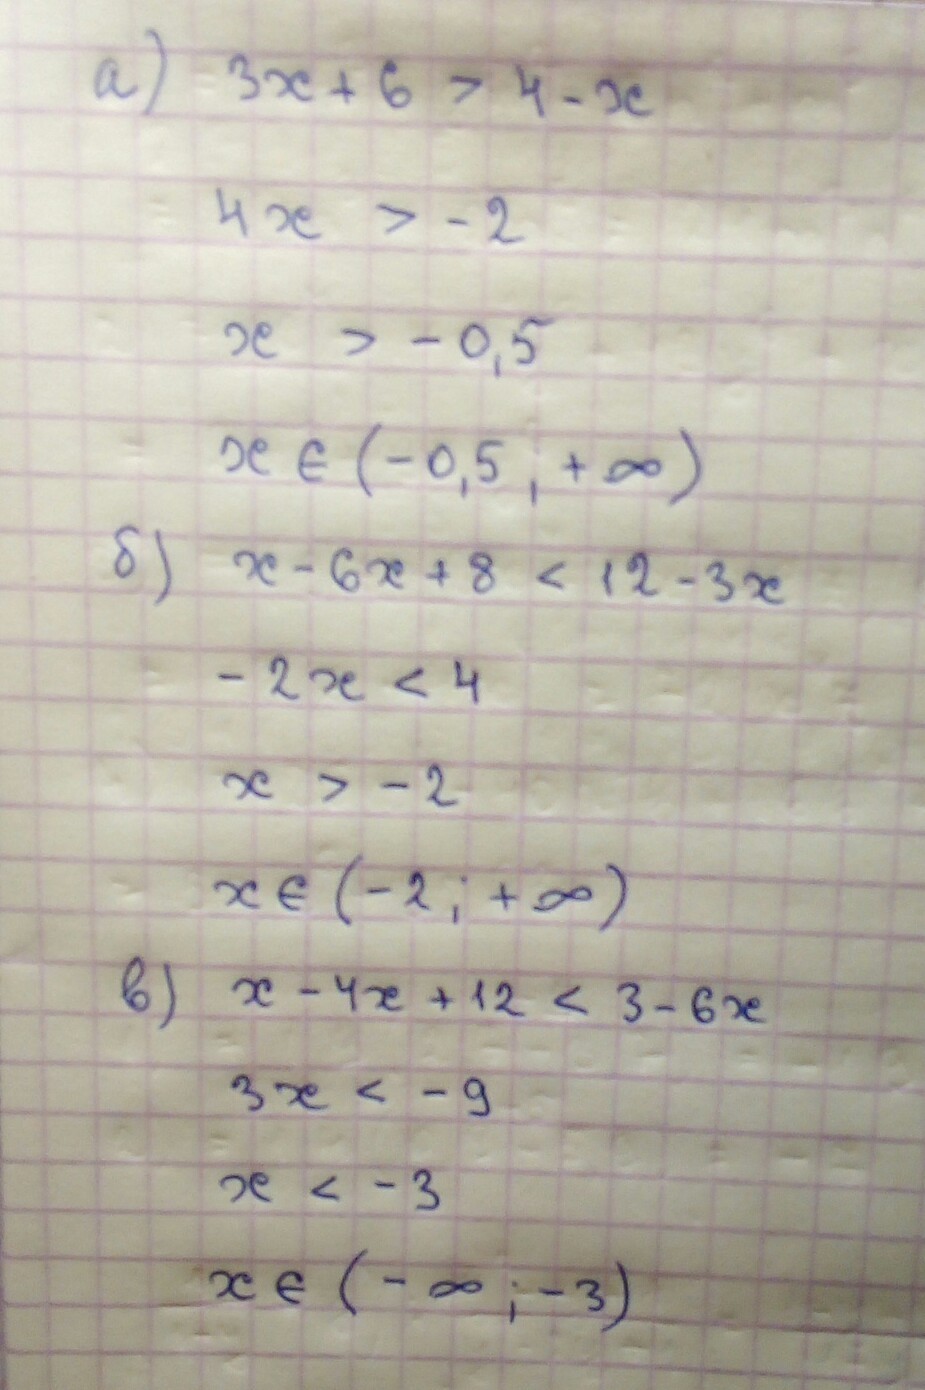 а) 3x + 6 > 4 - x
4x > -2
x > -0,5
x ∈ (-0,5 ; +∞)
б) x - 6x + 8 < 12 - 3x
-2x < 4
x > -2
x ∈ (-2 ; +∞)
в) x - 4x + 12 < 3 - 6x
3x < -9
x < -3
x ∈ (-∞ ; -3)